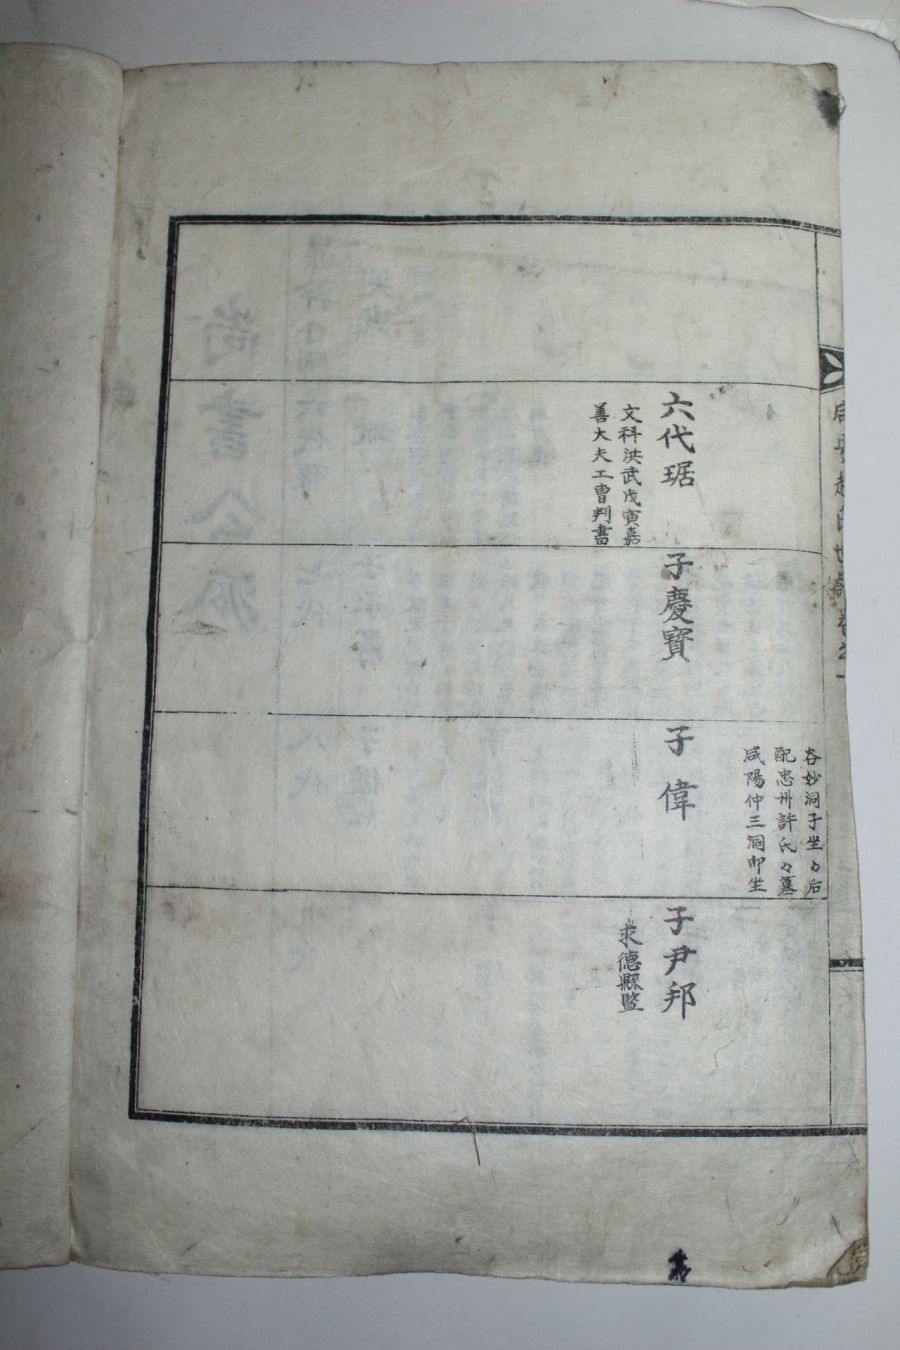 六代琚
文科洪武戊寅嘉
善大夫工曹判書
子慶寶
谷妙洞子坐々后
配忠州許氏々墓
咸陽仲三洞卯坐
子偉
子尹邦
求德縣監
趙氏世譜卷之一